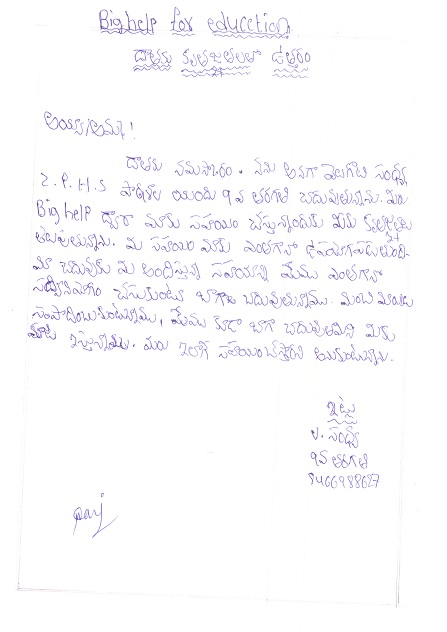 Big help for education
దాతకు కృతజ్ఞతలతో ఉత్తరం
అయ్యా/అమ్మా!
దాతకు నమస్కారం. నేను అనగా వెలగాటి సంధ్య
Z.P.H.S పాఠశాల యందు 9వ తరగతి చదువుతున్నాను. మీరు
Big help ద్వారా మాకు సహయం చేస్తున్నందుకు మీకు కృతజ్ఞతలు
తెలుపుతున్నాను. మీ సహయం మాకు ఎంతగానో ఉపయోగపడుతుంది.
మా చదువుకు మీ అందిస్తున్న సహయాన్ని మేము ఎంతగానో
సద్వినియోగం చేసుకుంటూ బాగా చదువుతున్నాము. మంచి మార్కులు
సంపాదించుకుంటున్నాము, మేము కూడా బాగా చదువుతామని మీకు
మాట ఇస్తున్నాము. మీరు ఇలాగే సహయం చేస్తారని అనుకుంటున్నాను.
ఇట్లు
V. సంధ్య
9వ తరగతి